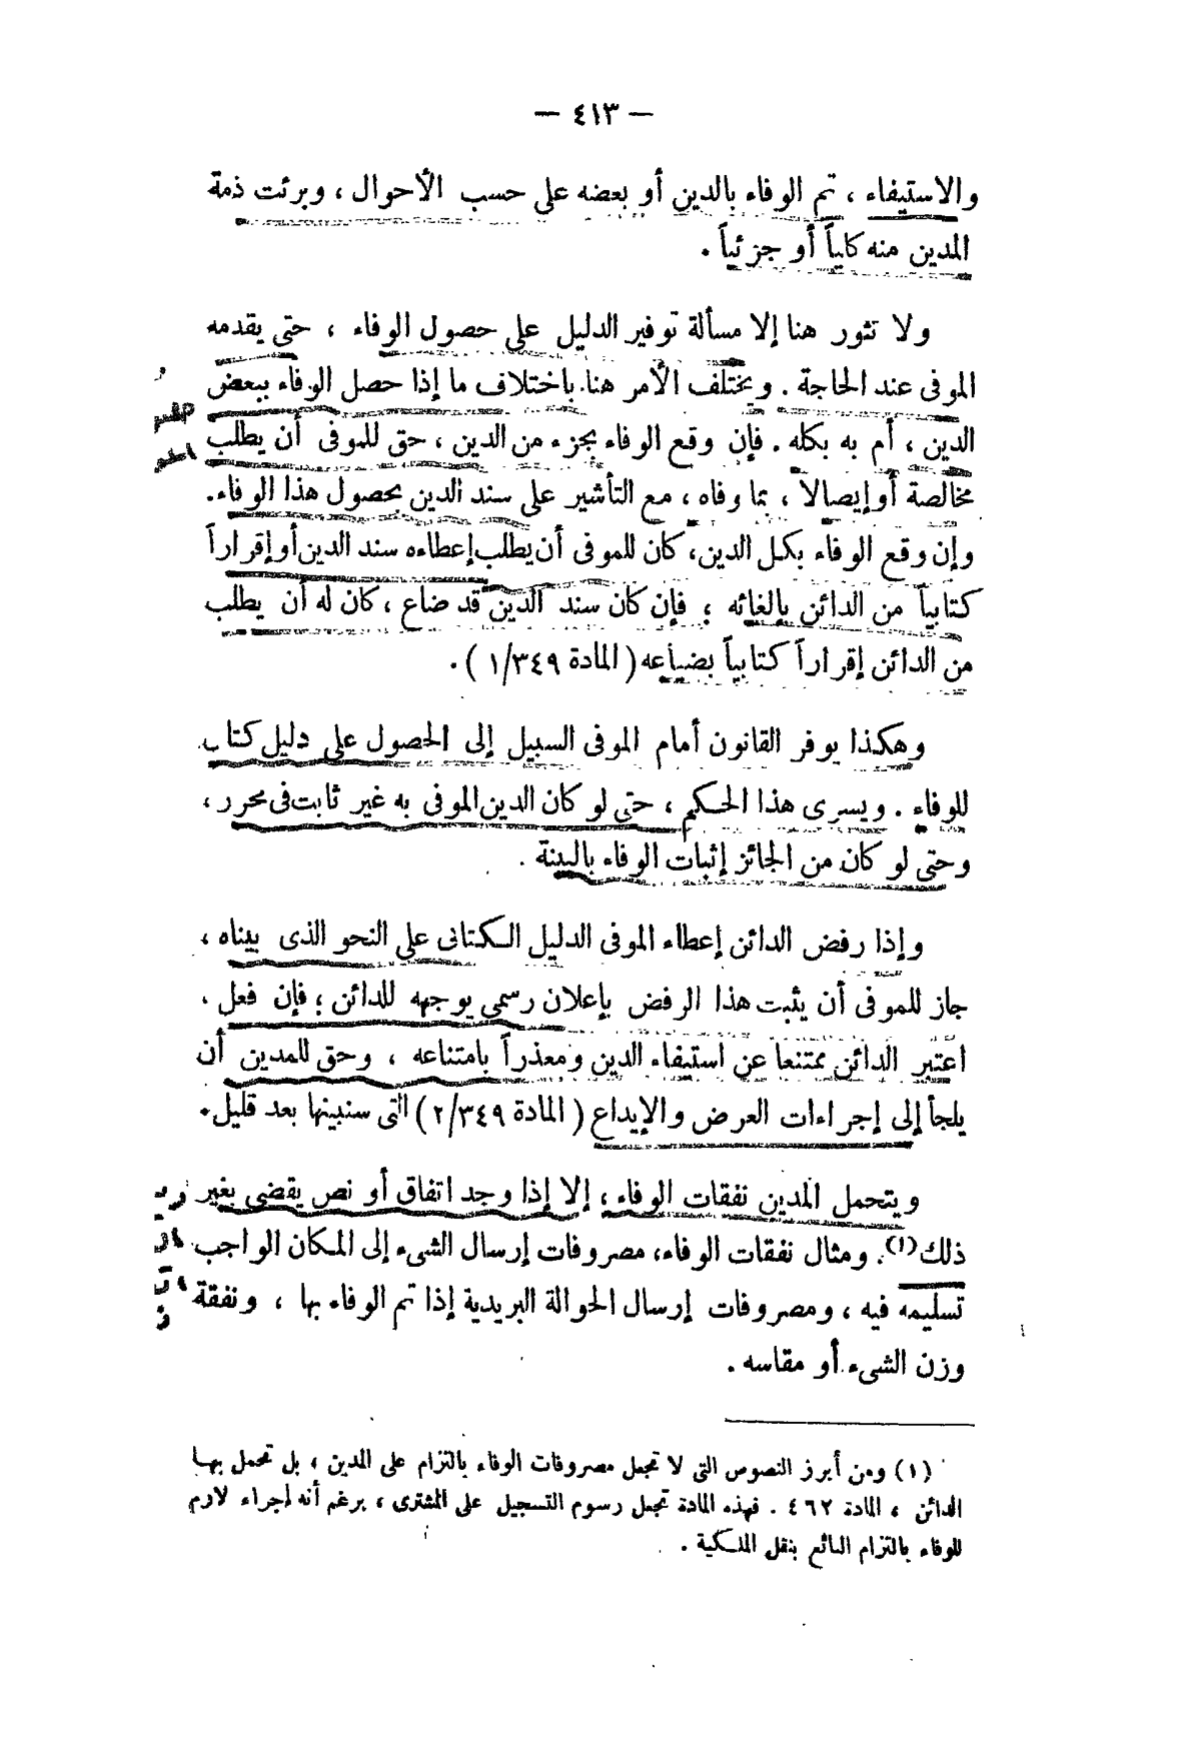 — ٤١٣ —
والاستيفاء ، تم الوفاء بالدين أو بعضه على حسب الأحوال ، وبرئت ذمة
المدين منه كلياً أو جزئياً .
ولا تثور هنا إلا مسألة توفير الدليل على حصول الوفاء ، حتى يقدمه
الموفى عند الحاجة . ويختلف الأمر هنا باختلاف ما إذا حصل الوفاء ببعض
الدين ، أم به بكله . فإن وقع الوفاء بجزء من الدين ، حق للموفى أن يطلب
مخالصة أو إيصالاً ، بما وفاه ، مع التأشير على سند الدين بحصول هذا الوفاء .
وإن وقع الوفاء بكل الدين ، كان للموفى أن يطلب إعطاءه سند الدين أو إقراراً
كتابياً من الدائن بإلغائه ؛ فإن كان سند الدين قد ضاع ، كان له أن يطلب
من الدائن إقراراً كتابياً بضياعه ( المادة ١/٣٤٩ ) .
وهكذا يوفر القانون أمام الموفى السبيل إلى الحصول على دليل كتاب
للوفاء . ويسرى هذا الحكم ، حتى لو كان الدين الموفى به غير ثابت فى محرر ،
وحتى لو كان من الجائز إثبات الوفاء بالبينة .
وإذا رفض الدائن إعطاء الموفى الدليل الكتابى على النحو الذى بيناه ،
جاز للموفى أن يثبت هذا الرفض بإعلان رسمى يوجهه للدائن ؛ فإن فعل ،
اعتبر الدائن ممتنعا عن استيفاء الدين ومعذراً بامتناعه ، وحق للمدين أن
يلجأ إلى إجراءات العرض والإيداع ( المادة ٢/٣٤٩ ) التى سنبينها بعد قليل .
ويتحمل المدين نفقات الوفاء ، إلا إذا وجد اتفاق أو نص يقضى بغير
ذلك (١) . ومثال نفقات الوفاء ، مصروفات إرسال الشىء إلى المكان الواجب
تسليمه فيه ، ومصروفات إرسال الحوالة البريدية إذا تم الوفاء بها ، ونفقة
وزن الشىء أو مقاسه .
(١) ومن أبرز النصوص التى لا تجعل مصروفات الوفاء بالتزام على المدين ، بل تحمل بها
الدائن ، المادة ٤٦٢ . فهذه المادة تجعل رسوم التسجيل على المشترى ، برغم أنه إجراء لازم
للوفاء بالتزام البائع بنقل الملكية .